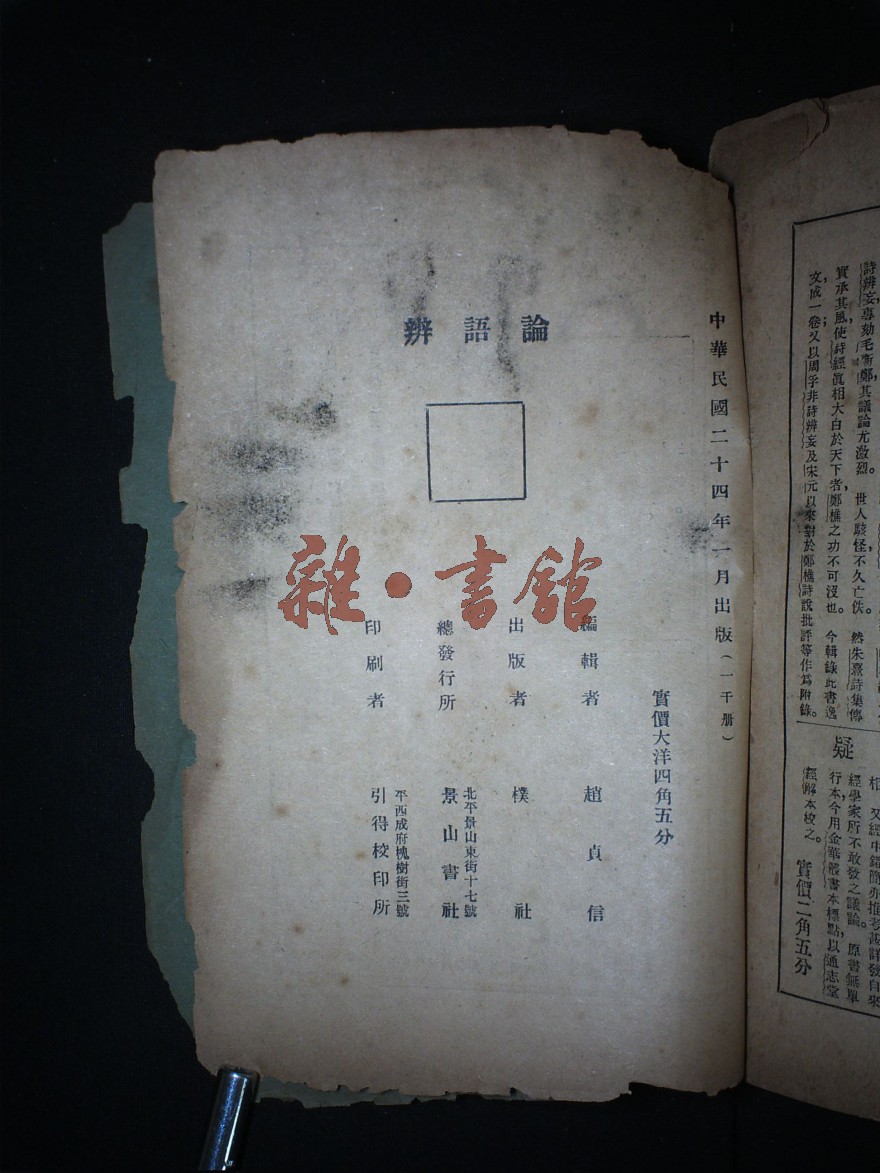 論語辨
中華民國二十四年一月出版(一千册)
實價大洋四角五分
編輯者 趙貞信
出版者 樸社
總發行所 北平景山東街十七號 景山書社
印刷者 平西成府槐樹街三號 引得校印所
雜·書館
詩辨妄,專劾毛衞鄭,其議論尤激烈。世人駭怪不久亡佚。然朱熹詩集傳
實承其風,使詩經眞相大白於天下者,鄭樵之功不可沒也。今輯錄此書逸
文成一卷;又以周孚非詩辨妄及宋元以來對於鄭樵詩說批評等作爲附錄。
疑
經學家所不敢發之議論。原書無單
行本,今用金華叢書本標點,以通志堂
經解本校之。實價二角五分